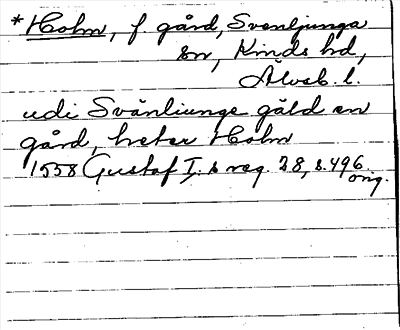 *Holm, f. gård, Svenljunga
sn, Kinds hd,
Älvsb. l.
udi Svänliunge gäld en
gård, heter Holm
1558 Gustaf I:s reg. 28, s. 496
orig.